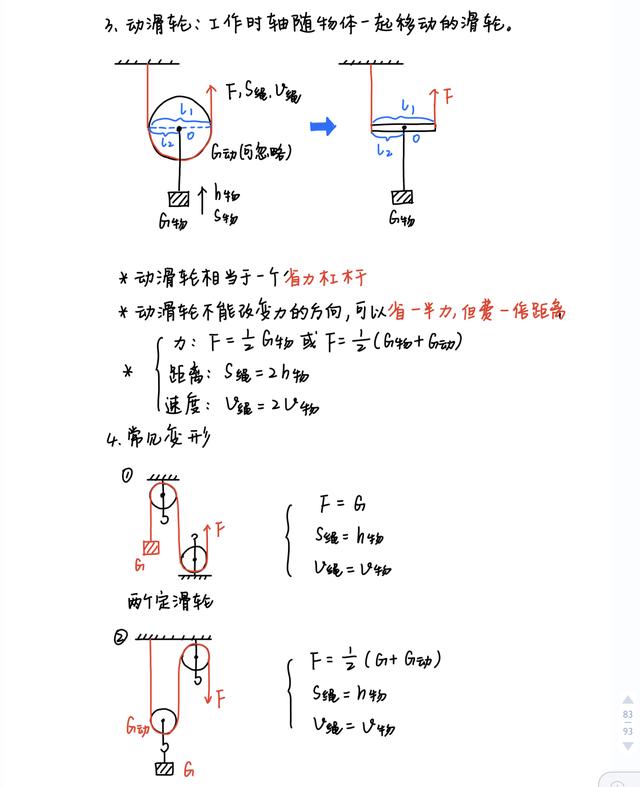 3、动滑轮：工作时轴随物体一起移动的滑轮。
F, S绳, V绳
F
l₁
l₁
l₂
O
l₂
O
G动(可忽略)
h物
S物
G物
G物
* 动滑轮相当于一个省力杠杆
* 动滑轮不能改变力的方向,可以省一半力,但费一倍距离
力: F = 1/2 G物 或 F = 1/2 (G物 + G动)
* 距离: S绳 = 2h物
速度: V绳 = 2V物
4. 常见变形
①
F = G
F
S绳 = h物
G
V绳 = V物
两个定滑轮
②
F = 1/2 (G + G动)
F
S绳 = h物
G动
V绳 = V物
G
83
93